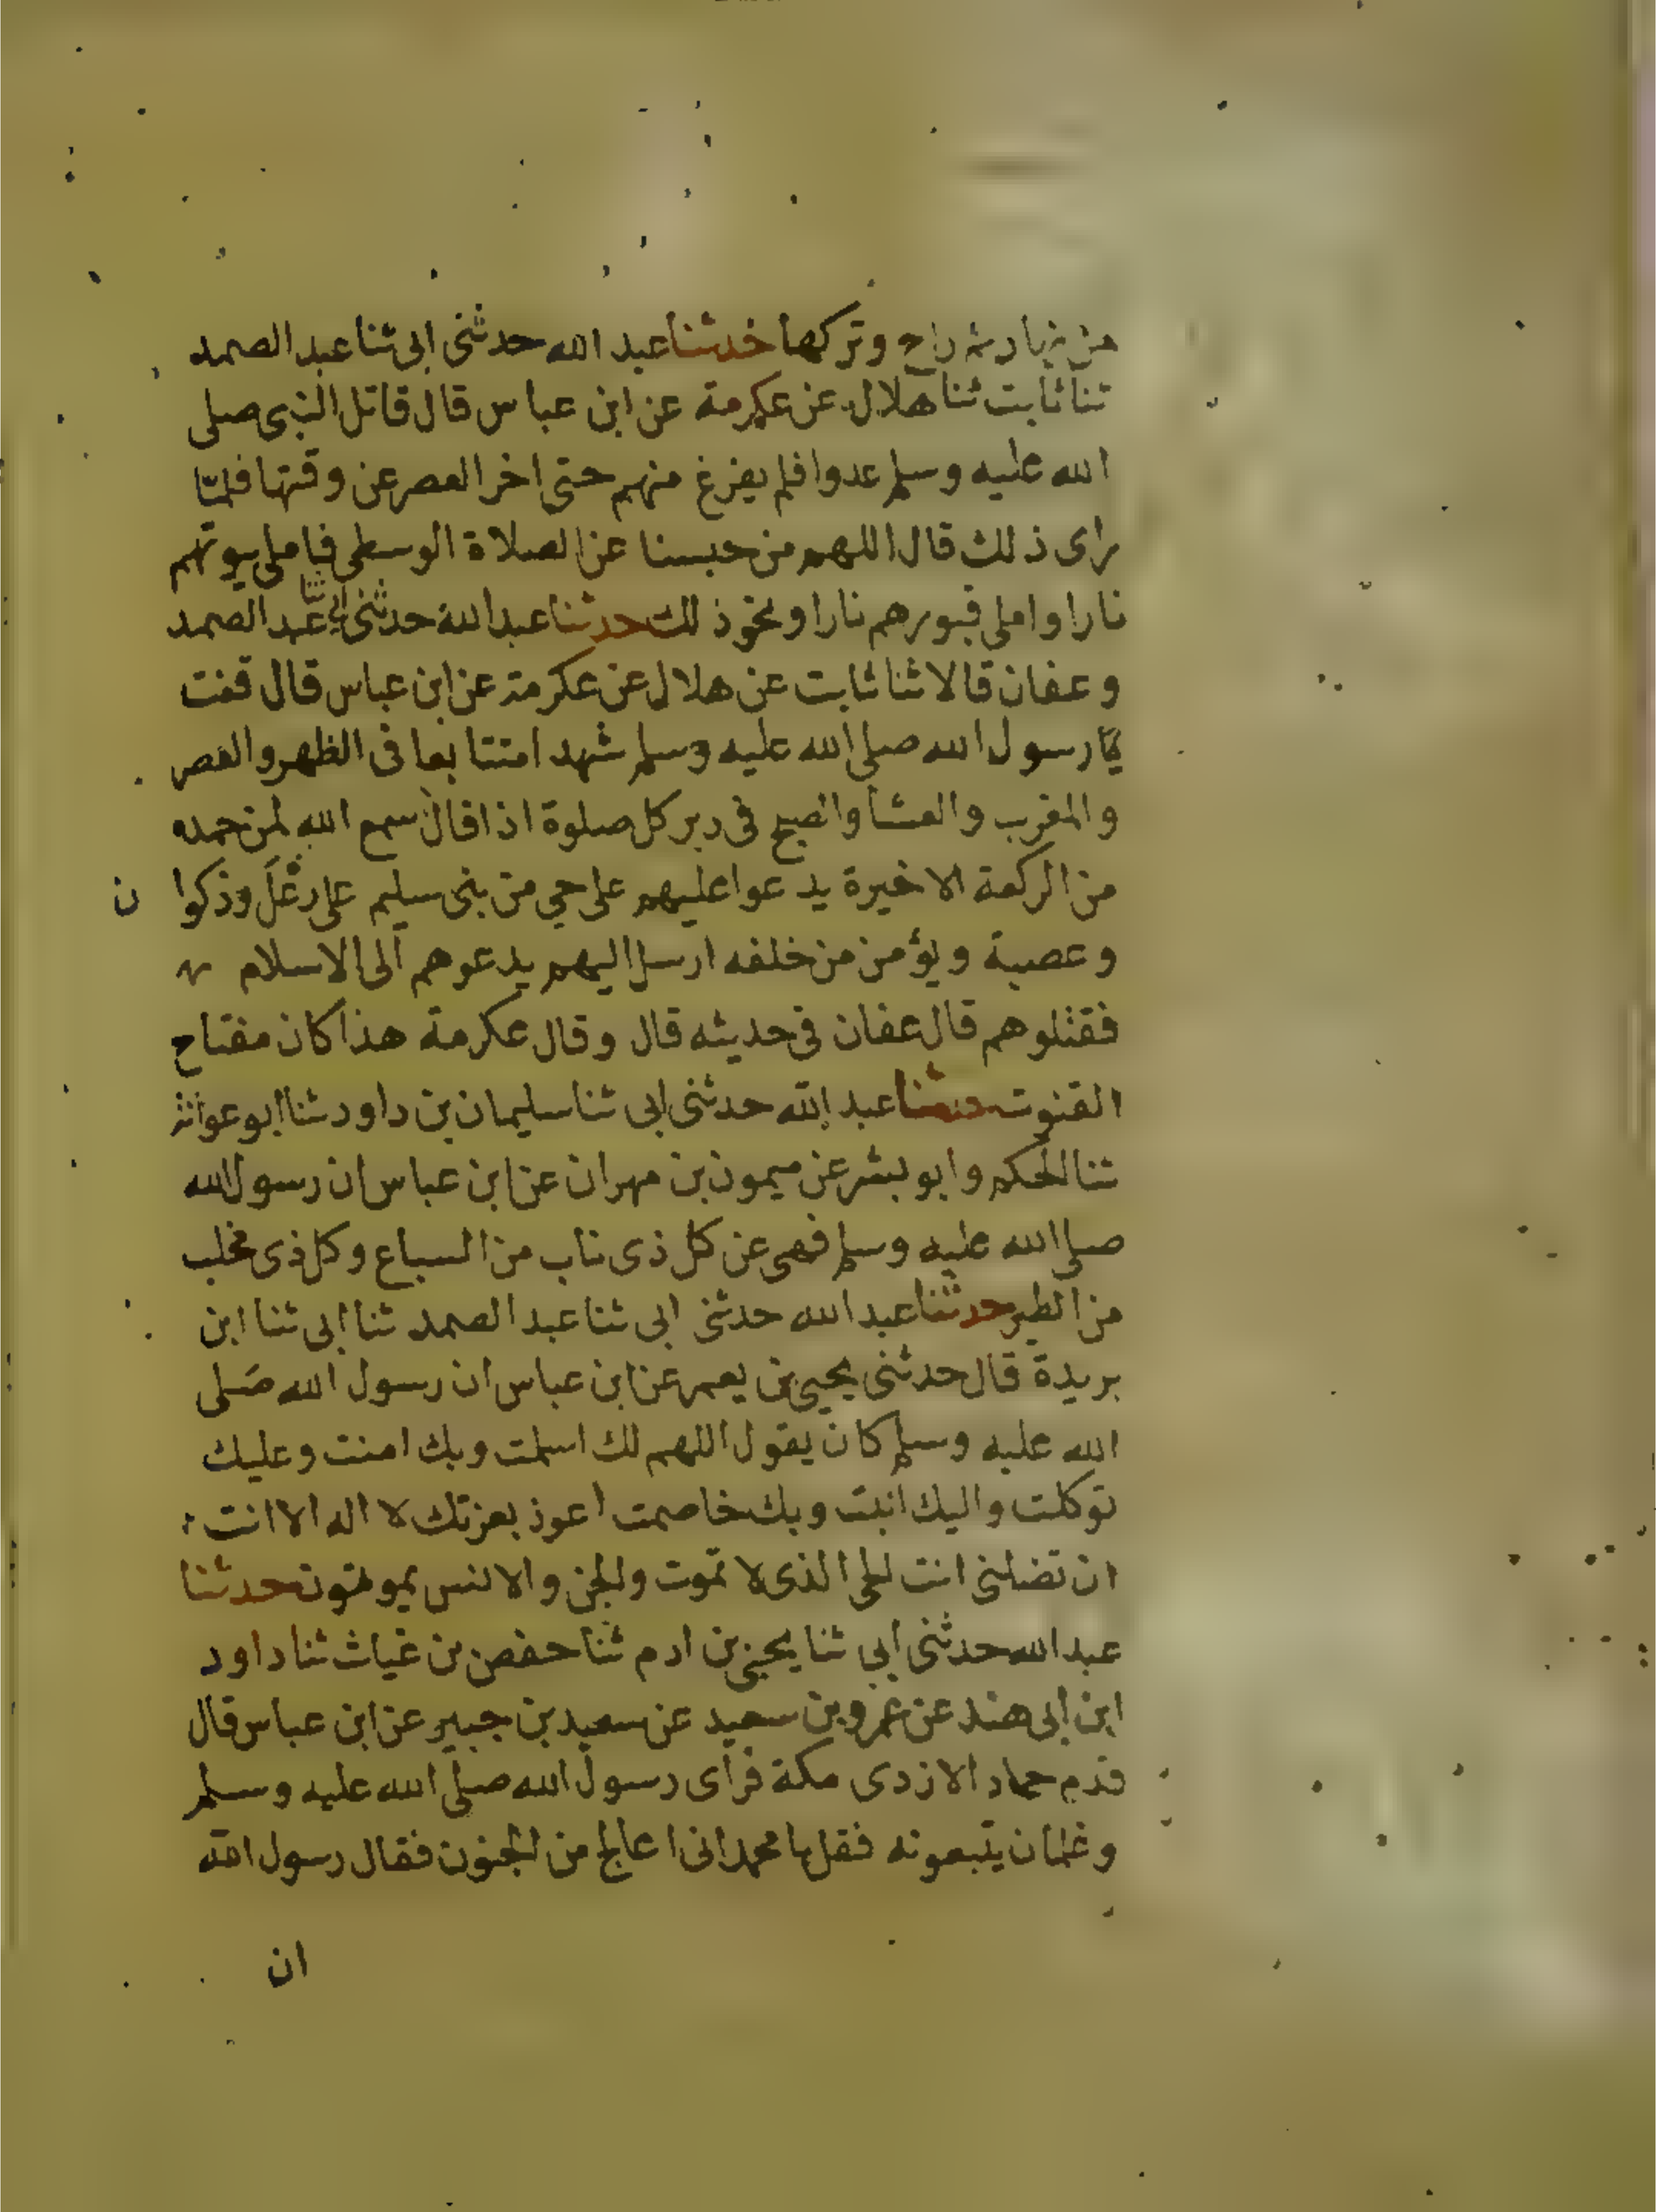 من ثيابه ثم راح وتركها حدثنا عبد الله حدثنى ابى ثنا عبد الصمد
ثنا ثابت ثنا هلال عن عكرمة عن ابن عباس قال قاتل النبى صلى
الله عليه وسلم عدوا فلم يفرغ منهم حتى اخر العصر عن وقتها فلما
راى ذلك قال اللهم من حبسنا عن الصلاة الوسطى فاملى بيوتهم
نارا واملى قبورهم نارا ونحو ذلك حدثنا عبد الله حدثنى ابى ثنا عبد الصمد
وعفان قالا ثنا ثابت عن هلال عن عكرمة عن ابن عباس قال قنت
رسول الله صلى الله عليه وسلم شهرا متتابعا فى الظهر والعصر
والمغرب والعشا والصبح فى دبر كل صلوة اذا قال سمع الله لمن حمده
من الركعة الاخيرة يدعوا عليهم على حي من بنى سليم على رعل وذكوا ن
وعصية ويؤمن من خلفه ارسل اليهم يدعوهم الى الاسلام
فقتلوهم قال عفان فى حديثه قال وقال عكرمة هذا كان مفتاح
القنوت حدثنا عبد الله حدثنى ابى ثنا سليمان بن داود ثنا ابو عوانة
ثنا الحكم وابو بشر عن ميمون بن مهران عن ابن عباس ان رسول الله
صلى الله عليه وسلم نهى عن كل ذى ناب من السباع وكل ذى مخلب
من الطير حدثنا عبد الله حدثنى ابى ثنا عبد الصمد ثنا ابى ثنا ابن
بريدة قال حدثنى يحيى بن يعمر عن ابن عباس ان رسول الله صلى
الله عليه وسلم كان يقول اللهم لك اسلمت وبك امنت وعليك
توكلت واليك انبت وبك خاصمت اعوذ بعزتك لا اله الا انت
ان تضلنى انت الحى الذى لا تموت والجن والانس يموتون حدثنا
عبد الله حدثنى ابى ثنا يحيى بن ادم ثنا حفص بن غياث ثنا داود
ابن ابى هند عن عمرو بن سعيد عن سعيد بن جبير عن ابن عباس قال
قدم حماد الازدى مكة فراى رسول الله صلى الله عليه وسلم
وغلمان يتبعونه فقل يا محمد انى اعالج من الجنون فقال رسول الله
ان